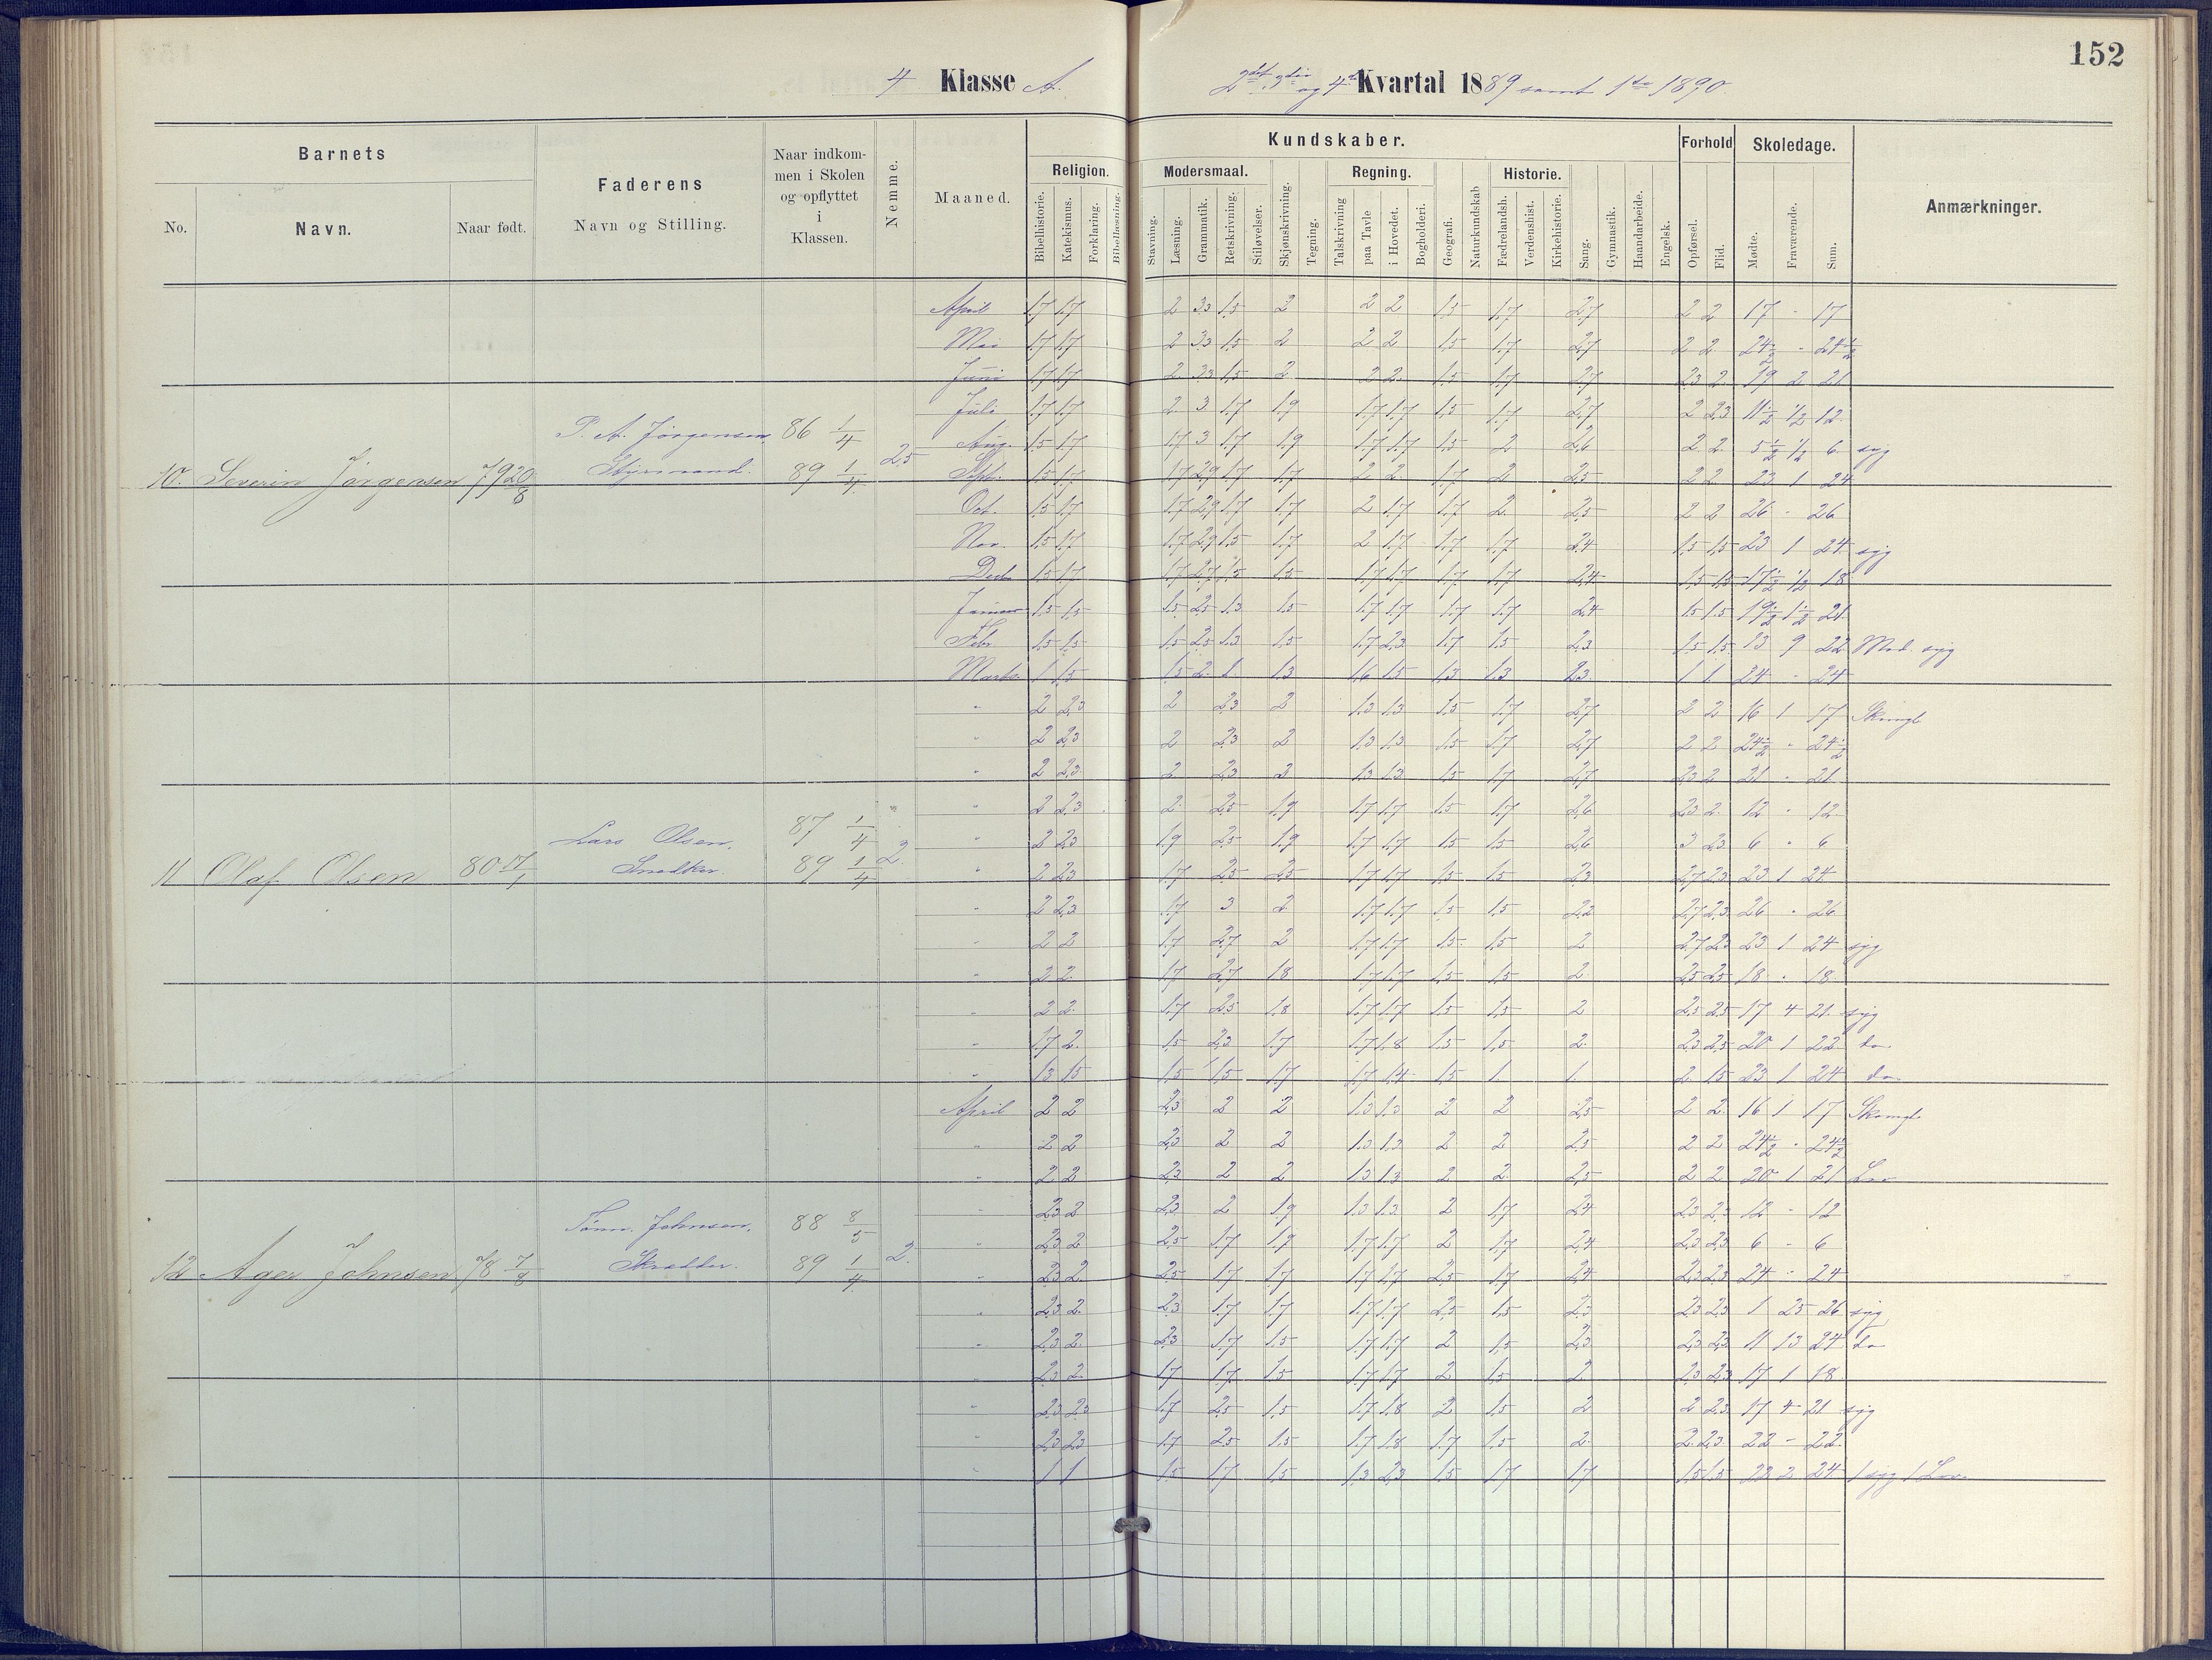 152
4 Klasse A.
2det, 3die og 4de Kvartal 1889 samt 1ste 1890.
Barnets
No. Navn. Naar født.
Faderens
Navn og Stilling.
Naar indkom-
men i Skolen
og opflyttet
i
Klassen.
Nemme.
Maaned.
Kundskaber.
Religion. Modersmaal. Regning. Historie.
Bibelhistorie. Katekismus. Forklaring. Bibellæsning. Stavning. Læsning. Grammatik. Retskrivning. Stiløvelser. Skjønskrivning. Tegning. Talskrivning paa Tavle i Hovedet. Bogholderi. Geografi. Naturkundskab Fædrelandsh. Verdenshist. Kirkehistorie. Sang. Gymnastik. Haandarbeide. Engelsk.
Forhold
Opførsel. Flid.
Skoledage.
Mødte. Fraværende. Sum.
Anmærkninger.
April 1,7 1,7 2 3,3 1,5 2 2 2 1,5 1,7 2,7 2 2 17 - 17
Mai 1,7 1,7 2 3,3 1,5 2 2 2 1,5 1,7 2,7 2 2 24½ - 24½
Juni 1,7 1,7 2 3,3 1,5 2 2 2 1,5 1,7 2,7 2,3 2 19 2 21
Juli 1,7 1,7 2 3 1,7 1,9 1,7 1,7 1,5 1,7 2,7 2 2,3 11½ ½ 12
P. A. Jörgensen, 86 1/4
Aug. 1,5 1,7 1,7 3 1,7 1,9 1,7 1,7 1,5 2 2,6 2 2 5½ ½ 6 syg
10. Severin Jörgensen 79 20/8 Styrmand. 89 1/4 2,5
Sept. 1,5 1,7 1,7 2,9 1,7 1,7 2 2 1,7 2 2,5 2 2 23 1 24
Oct. 1,5 1,7 1,7 2,9 1,7 1,7 2 1,7 1,7 2 2,5 2 2 26 - 26
Nov. 1,5 1,7 1,7 2,9 1,5 1,7 2 1,7 1,7 1,7 2,4 1,5 1,5 23 1 24 syg
Decb. 1,5 1,7 1,7 2,7 1,5 1,5 1,7 1,7 1,7 1,7 2,4 1,5 1,5 17½ ½ 18
Januar 1,5 1,5 1,5 2,5 1,3 1,5 1,7 1,7 1,7 1,7 2,4 1,5 1,5 19½ 1½ 21
Febr. 1,5 1,5 1,5 2,5 1,3 1,5 1,7 2,3 1,7 1,5 2,3 1,5 1,5 13 9 22 syg
Marts 1 1,5 1,5 2 1 1,3 1,6 1,5 1,3 1,3 2,3 1 1 24 - 24
" 2 2,3 2 2,3 2 1,3 1,3 1,5 1,7 2,7 2 2 16 1 17
" 2 2,3 2 2,3 2 1,3 1,3 1,5 1,7 2,7 2 2 24½ - 24½
" 2 2,3 2 2,3 2 1,3 1,3 1,5 1,7 2,7 2,3 2 21 - 21
" 2 2,3 2 2,5 1,9 1,7 1,7 1,5 1,7 2,6 2,3 2 12 - 12
Lars Olsen, 87 1/4
" 2 2,3 1,9 2,5 1,9 1,7 1,7 1,5 1,5 2,6 3 2,3 6 - 6
11 Olaf Olsen 80 Snedker. 89 1/4 2
" 2 2,3 1,7 2,5 2,5 1,7 1,7 1,5 1,5 2,3 2,7 2,3 23 1 24
" 2 2,3 1,7 3 2 1,7 1,7 1,5 1,5 2,2 2,7 2,3 26 - 26
" 2 2 1,7 2,7 2 1,7 1,7 1,5 1,5 2 2,7 2,3 23 1 24 syg
" 2 2 1,7 2,7 1,8 1,7 1,7 1,5 1,5 2 2,5 2,5 18 - 18
" 2 2 1,7 2,5 1,8 1,7 1,7 1,5 1,5 2 2,5 2,5 17 4 21 syg
" 1,7 2 1,5 2,3 1,7 1,7 1,8 1,5 1,5 2 2,3 2,5 20 1 22 do
" 1,3 1,5 1,5 1,5 1,7 1,7 1,4 1,5 1 1 2 1,5 23 1 24 do
April 2 2 2,3 2 2 1,3 1,3 2 2 2,5 2 2 16 1 17
" 2 2 2,3 2 2 1,3 1,3 2 2 2,5 2 2 24½ - 24½
" 2 2 2,3 2 2 1,3 1,3 2 2 2,5 2 2 20 1 21 Lov
" 2,3 2 2,3 2 1,9 1,3 1,3 2 1,7 2,4 2,3 2,3 12 - 12
Tönn. Johnsen, 88 8/5
" 2,3 2 2,5 1,7 1,9 1,7 1,7 2 1,7 2,4 2,3 2,3 6 - 6
12 Ager Johnsen 78 7/8 Skrædder. 89 1/4 2
" 2,3 2 2,5 1,7 1,7 1,7 1,7 2,5 1,7 2,4 2,3 2,3 24 - 24
" 2,3 2 2,3 1,7 1,7 1,7 1,7 2,5 1,5 2,3 2,3 2,3 1 25 26 syg
" 2,3 2 2,3 1,7 1,5 1,7 1,7 2 1,5 2,3 2,3 2,3 11 13 24 do
" 2,3 2 1,7 1,7 1,5 1,7 1,7 2 1,5 2 2,3 2,3 17 1 18
" 2,3 2,3 1,7 2,5 1,5 1,7 1,8 2 1,5 2 2 2,3 17 4 21 syg
" 2,3 2,3 1,7 2,5 1,5 1,7 1,8 1,7 1,5 2 2 2,3 22 - 22
" 1 1 1,5 1,7 1,5 1,3 2,3 1,5 1,7 1,7 1,5 1,5 22 2 24 1 syg 1 Lov